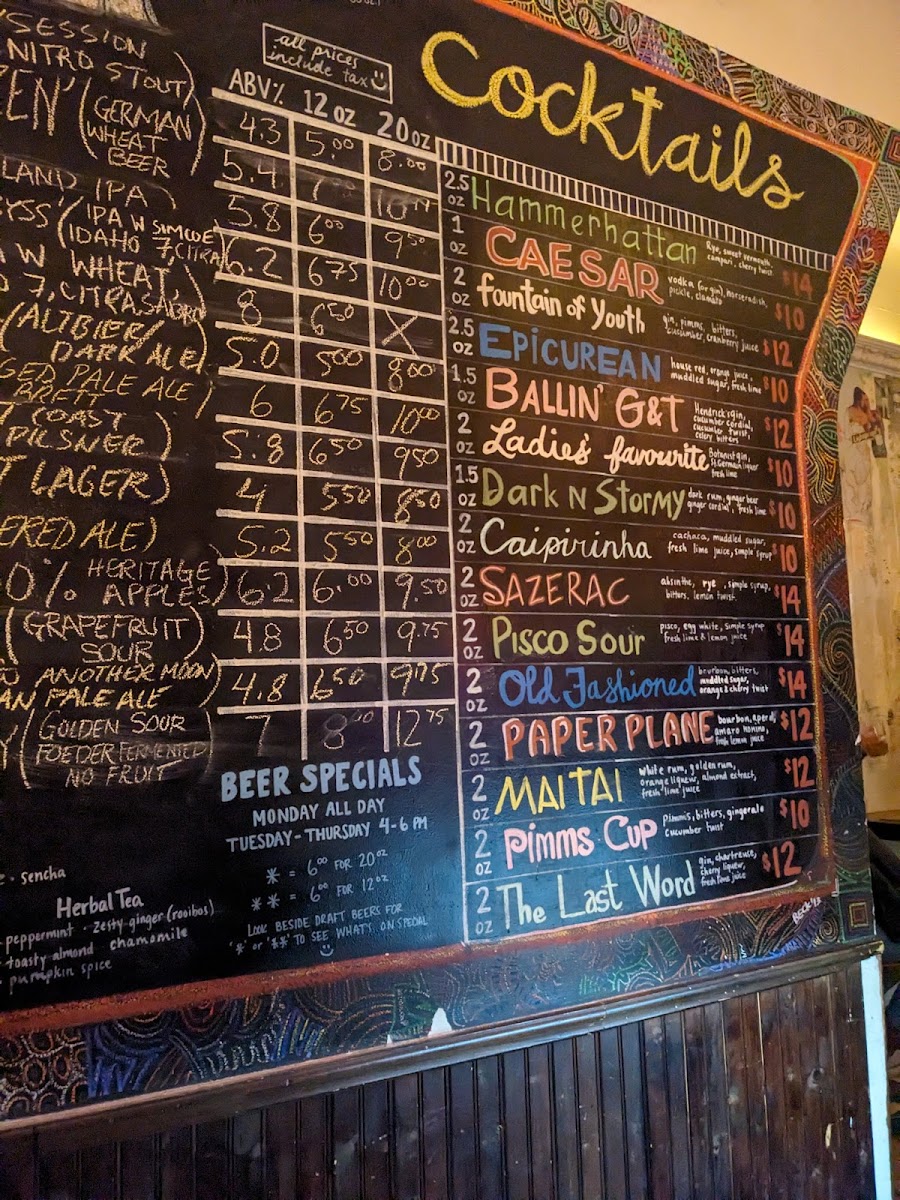 'SESSION
NITRO STOUT)
EEN' (GERMAN
WHEAT
BEER)
LAND IPA)
(IPA W SIMCOE
IDAHO 7, CITRA
W WHEAT,
7, CITRA, SABRO)
(ALTBIER/
DARK ALE)
GED PALE ALE
BRETT
COAST
PILSNER)
LAGER)
ERED ALE)
0% HERITAGE
APPLES)
(GRAPEFRUIT
SOUR)
ANOTHER MOON)
AN PALE ALE)
(GOLDEN SOUR
FOEDER FERMENTED
NO FRUIT)
all prices
include tax
ABV% 12 oz 20 oz
4.3 5.00 8.00
5.4
5.8 6.00 9.50
6.2 6.75 10.00
8 6.50 X
5.0 5.00 8.00
6 6.75 10.00
5.8 6.50 9.50
4 5.50 8.50
5.2 5.50 8.00
6.2 6.00 9.50
4.8 6.50 9.75
4.8 6.50 9.75
7 8.00 12.75
BEER SPECIALS
MONDAY ALL DAY
TUESDAY - THURSDAY 4-6 PM
* = 6.00 FOR 20 oz
** = 6.00 FOR 12 oz
LOOK BESIDE DRAFT BEERS FOR
'*' or '**' TO SEE WHAT'S ON SPECIAL
sencha
Herbal Tea
- peppermint - zesty ginger (rooibos)
- toasty almond chamomile
- pumpkin spice
Cocktails
2.5 oz Hammerhattan Rye, sweet vermouth, $14
campari, cherry twist
1 oz CAESAR vodka (or gin), horseradish, $10
pickle, clamato
2 oz fountain of Youth gin, pimms, bitters, $12
cucumber, cranberry juice
2.5 oz EPICUREAN house red, orange juice, $10
muddled sugar, fresh lime
1.5 oz BALLIN' G&T Hendrick's gin, $12
cucumber cordial,
cucumber twist,
celery bitters
2 oz Ladies favourite Botanist gin, $10
St. Germain liquor
fresh lime
1.5 oz Dark N Stormy dark rum, ginger beer $10
ginger cordial, fresh lime
2 oz Caipirinha cachaca, muddled sugar, $10
fresh lime juice, simple syrup
2 oz SAZERAC absinthe, rye, simple syrup, $14
bitters, lemon twist
2 oz Pisco Sour pisco, egg white, simple syrup $14
fresh lime & lemon juice
2 oz Old Fashioned bourbon, bitters, $14
muddled sugar,
orange & cherry twist
2 oz PAPER PLANE bourbon, aperol, $12
amaro nonino,
fresh lemon juice
2 oz MAI TAI white rum, golden rum, $12
orange liqueur, almond extract,
fresh lime juice
2 oz PIMMS CUP Pimms, bitters, gingerale $10
cucumber twist
2 oz The Last Word gin, chartreuse, $12
cherry liqueur,
fresh lime juice